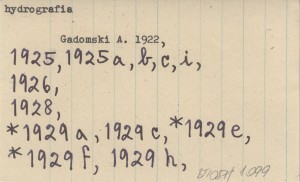 hydrografia
Gadomski A. 1922,
1925, 1925a, b, c, i,
1926,
1928,
*1929a, 1929c, *1929e,
*1929f, 1929h,
1099